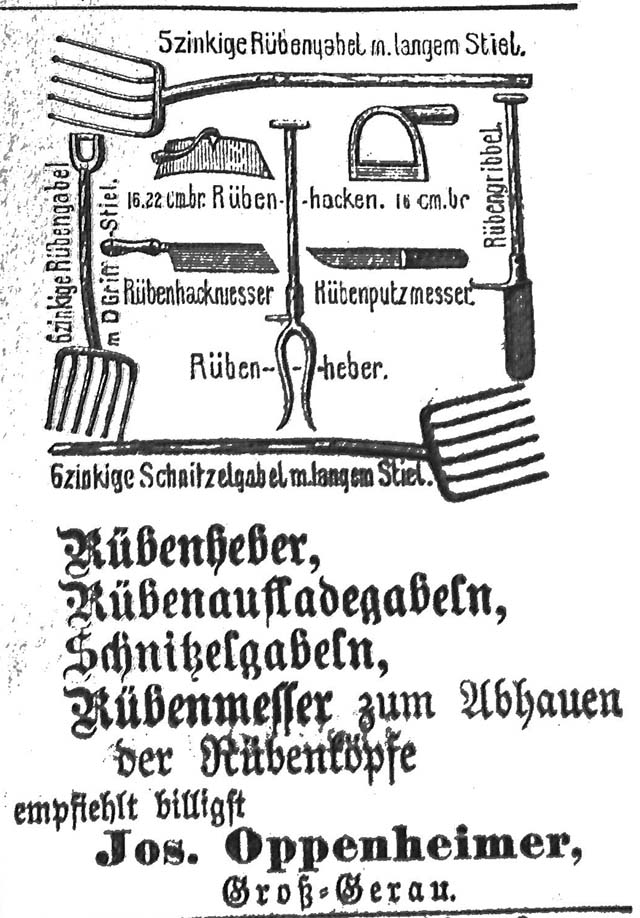 5zinkige Rübengabel m. langem Stiel.
6zinkige Rübengabel
m D Griff-Stiel.
16.22 cm.br. Rüben-
-hacken. 16 cm.br
Rübengribbel.
Rübenhackmesser
Rübenputzmesser.
Rüben-
-heber.
6zinkige Schnitzelgabel m. langem Stiel.
Rübenheber,
Rübenaufladegabeln,
Schnitzelgabeln,
Rübenmesser zum Abhauen
der Rübenköpfe
empfiehlt billigst
Jos. Oppenheimer,
Groß-Gerau.